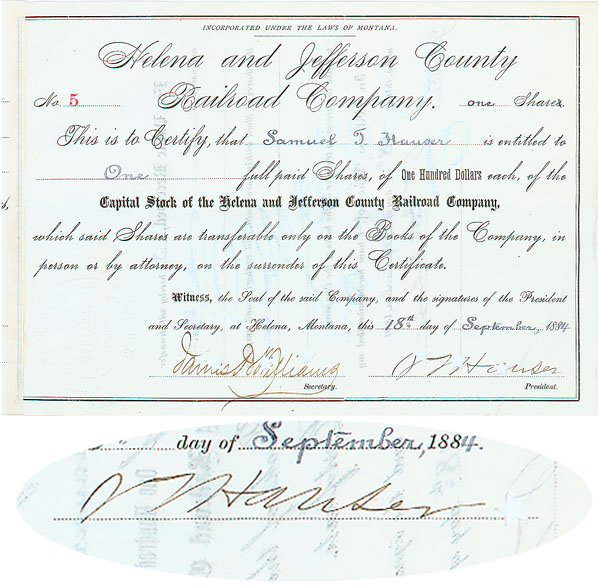 INCORPORATED UNDER THE LAWS OF MONTANA.
Helena and Jefferson County
No. 5 Railroad Company. one Shares
This is to Certify, that Samuel T. Hauser is entitled to
One full paid Shares, of One Hundred Dollars each, of the
Capital Stock of the Helena and Jefferson County Railroad Company,
which said Shares are transferable only on the Books of the Company, in
person or by attorney, on the surrender of this Certificate.
Witness, the Seal of the said Company, and the signatures of the President
and Secretary, at Helena, Montana, this 18th day of September, 1884
Williams S T Hauser
Secretary. President.
day of September, 1884.
S T Hauser